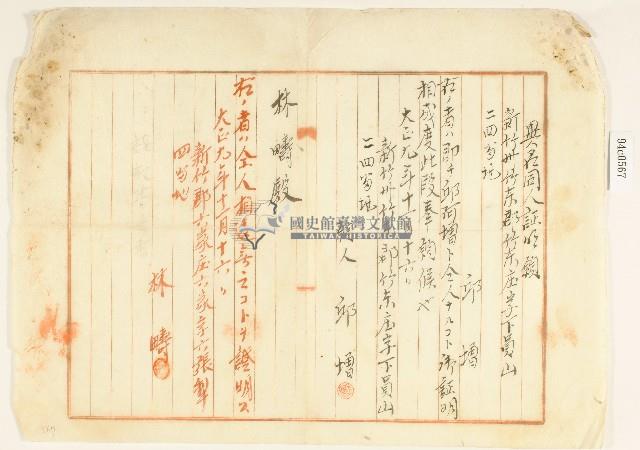 異名同人証明願
新竹州竹東郡竹東庄字下員山
二四番地
邱 增
右ノ者ハ即チ邱阿增ト仝人ナルコト御証明
相成度此段奉願候也
大正九年十一月十六日
新竹州竹東郡竹東庄字下員山
二四番地
願人 邱 增
林 疇 殿
右ノ者ハ仝人相違無之コトヲ證明ス
大正九年十一月十六日
新竹郡六家庄六家字六張犁
四番地
林 疇
國史館臺灣文獻館
TAIWAN HISTORICA
94c0567